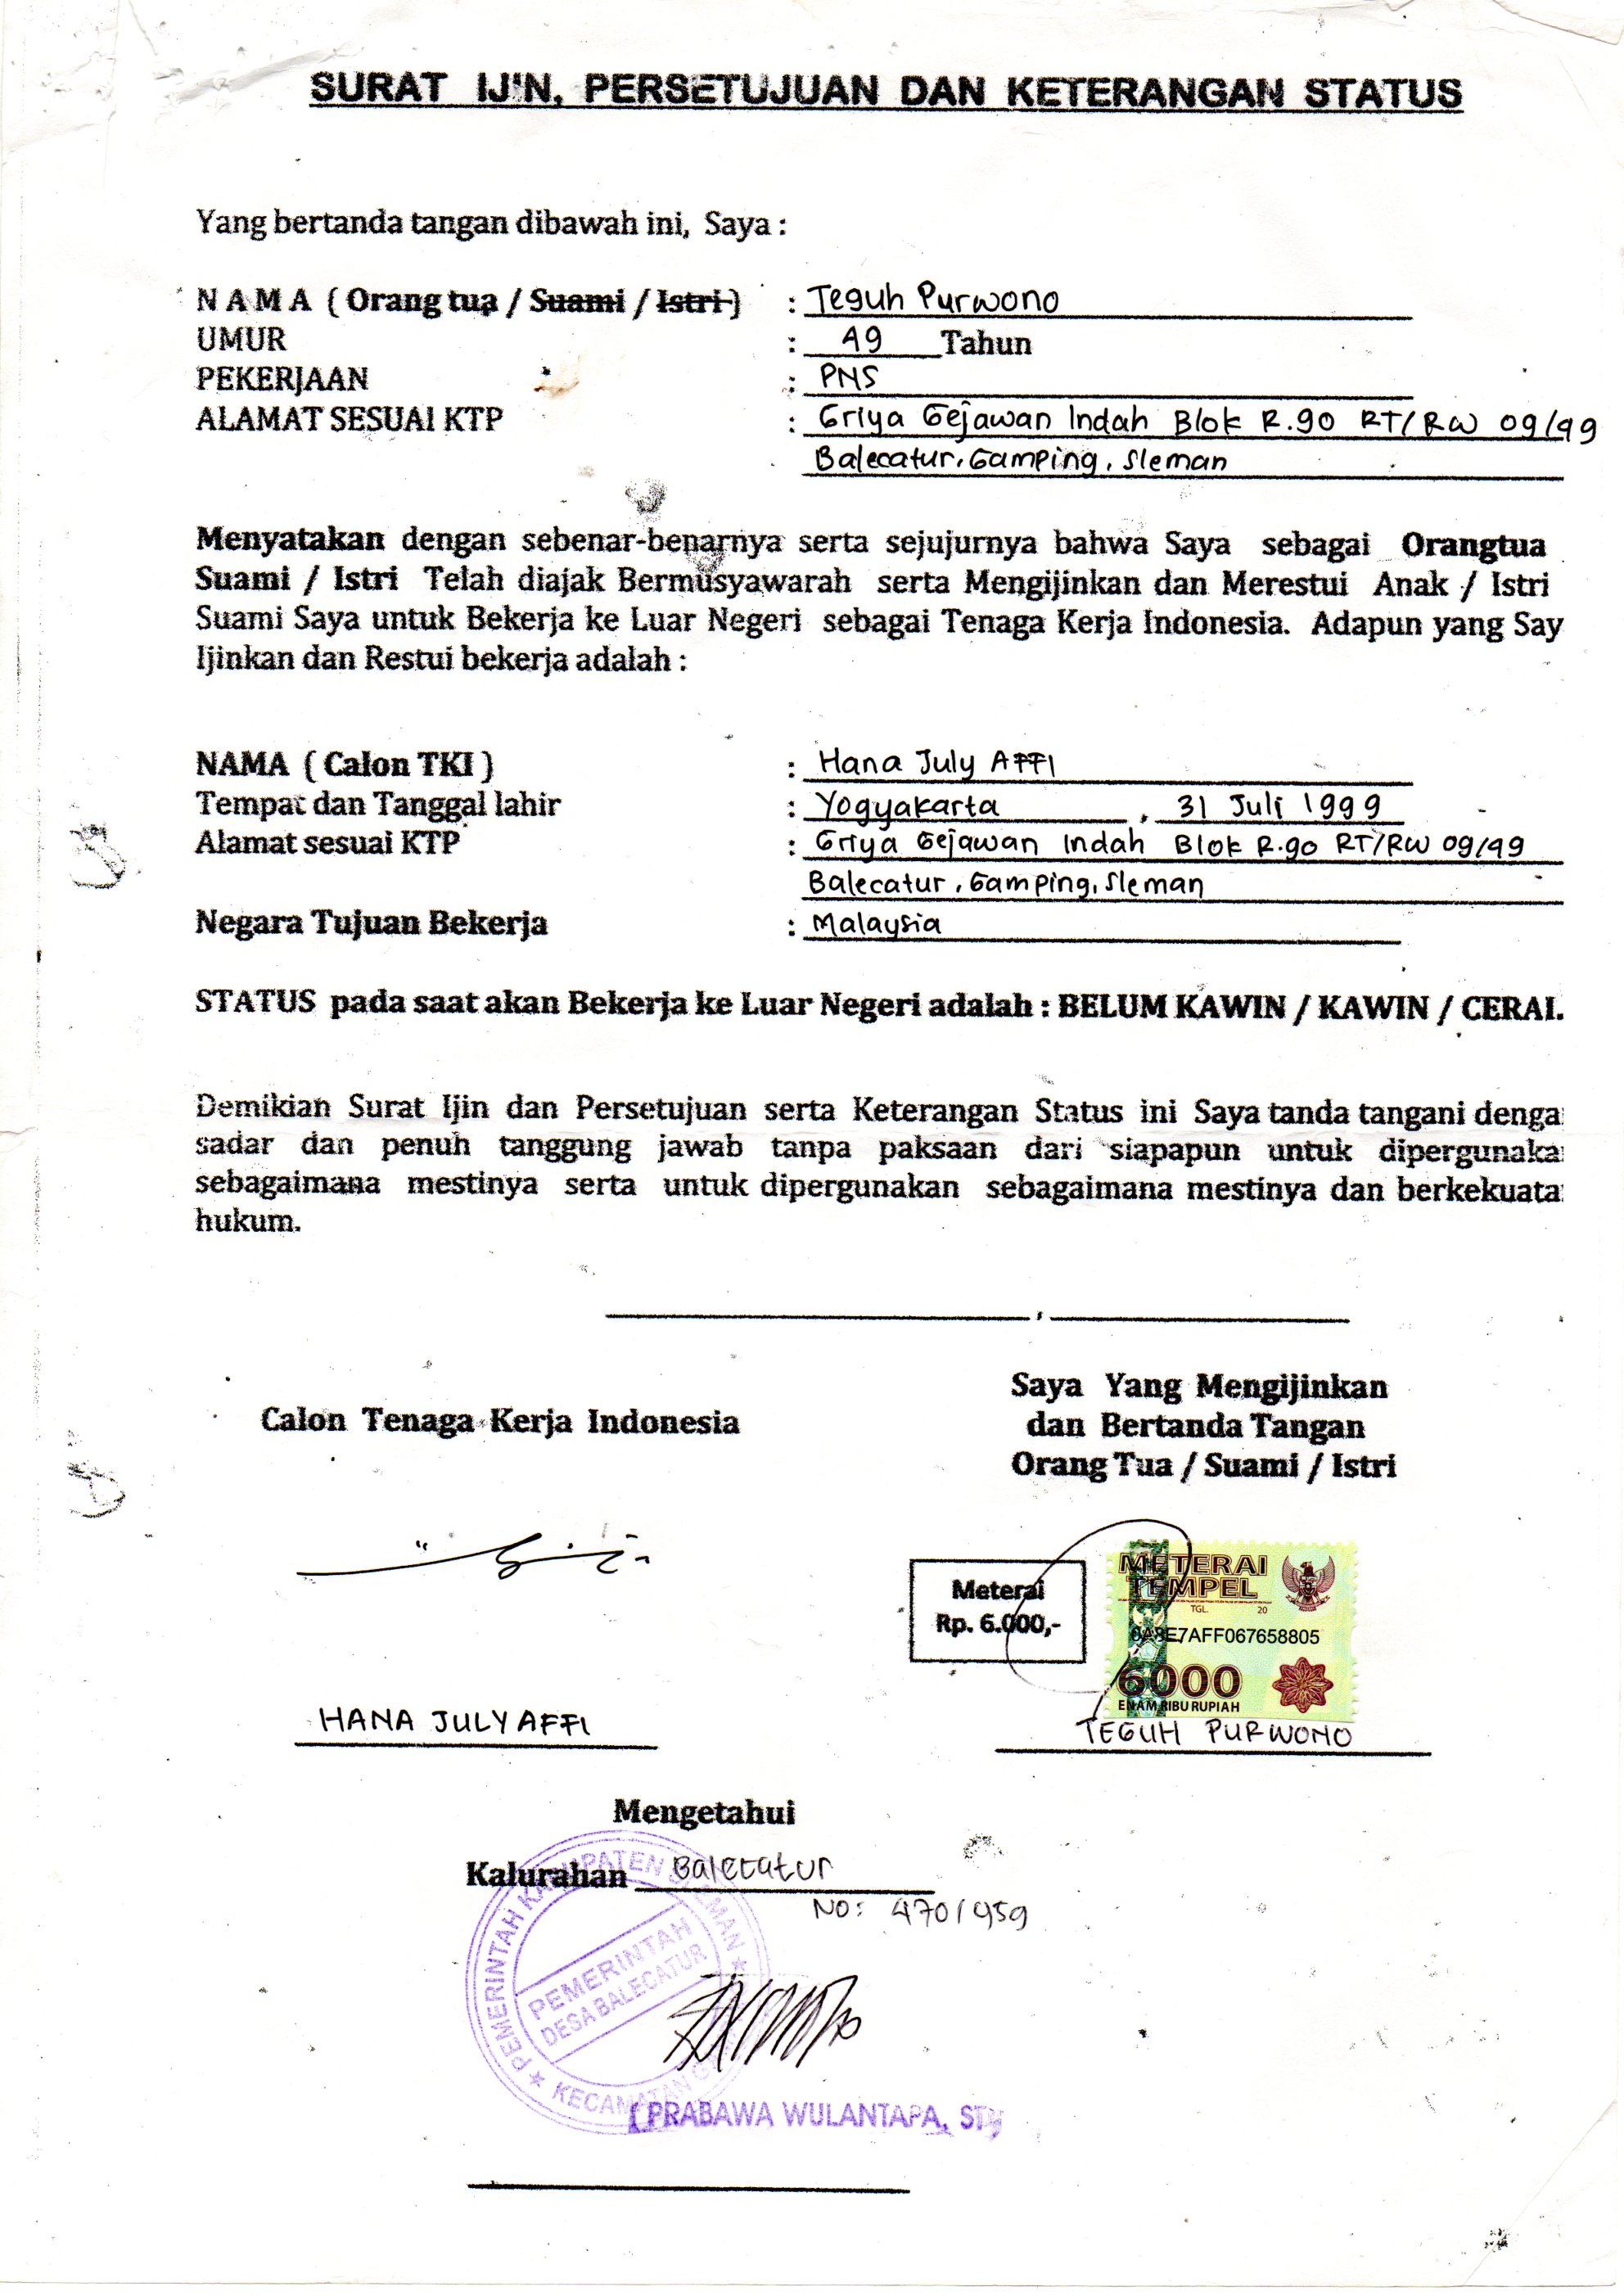 SURAT IJIN, PERSETUJUAN DAN KETERANGAN STATUS
Yang bertanda tangan dibawah ini, Saya :
N A M A ( Orang tua / Suami / Istri ) : Teguh Purwono
UMUR : 49 Tahun
PEKERJAAN : PNS
ALAMAT SESUAI KTP : Griya Gejawan Indah Blok R.90 RT/RW 09/49
Balecatur, Gamping, Sleman
Menyatakan dengan sebenar-benarnya serta sejujurnya bahwa Saya sebagai Orangtua
Suami / Istri Telah diajak Bermusyawarah serta Mengijinkan dan Merestui Anak / Istri
Suami Saya untuk Bekerja ke Luar Negeri sebagai Tenaga Kerja Indonesia. Adapun yang Say
Ijinkan dan Restui bekerja adalah :
NAMA ( Calon TKI ) : Hana July AFFI
Tempat dan Tanggal lahir : Yogyakarta , 31 Juli 1999
Alamat sesuai KTP : Griya Gejawan Indah Blok R.90 RT/RW 09/49
Balecatur, Gamping, Sleman
Negara Tujuan Bekerja : Malaysia
STATUS pada saat akan Bekerja ke Luar Negeri adalah : BELUM KAWIN / KAWIN / CERAI.
Demikian Surat Ijin dan Persetujuan serta Keterangan Status ini Saya tanda tangani denga
sadar dan penuh tanggung jawab tanpa paksaan dari siapapun untuk dipergunaka
sebagaimana mestinya serta untuk dipergunakan sebagaimana mestinya dan berkekuata
hukum.
Saya Yang Mengijinkan
Calon Tenaga Kerja Indonesia dan Bertanda Tangan
Orang Tua / Suami / Istri
Meterai
Rp. 6.000,-
METERAI
TEMPEL
TGL. 20
0A8E7AFF067658805
6000
ENAM RIBU RUPIAH
HANA JULY AFFI TEGUH PURWONO
Mengetahui
Kalurahan Balecatur
No: 470/459
PEMERINTAH KABUPATEN SLEMAN
PEMERINTAH
DESA BALECATUR
KECAMATAN
( PRABAWA WULANTAPA, ST)